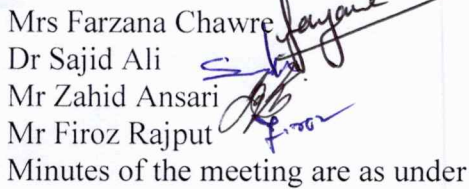 Mrs Farzana Chawre
Dr Sajid Ali
Mr Zahid Ansari
Mr Firoz Rajput
Minutes of the meeting are as under